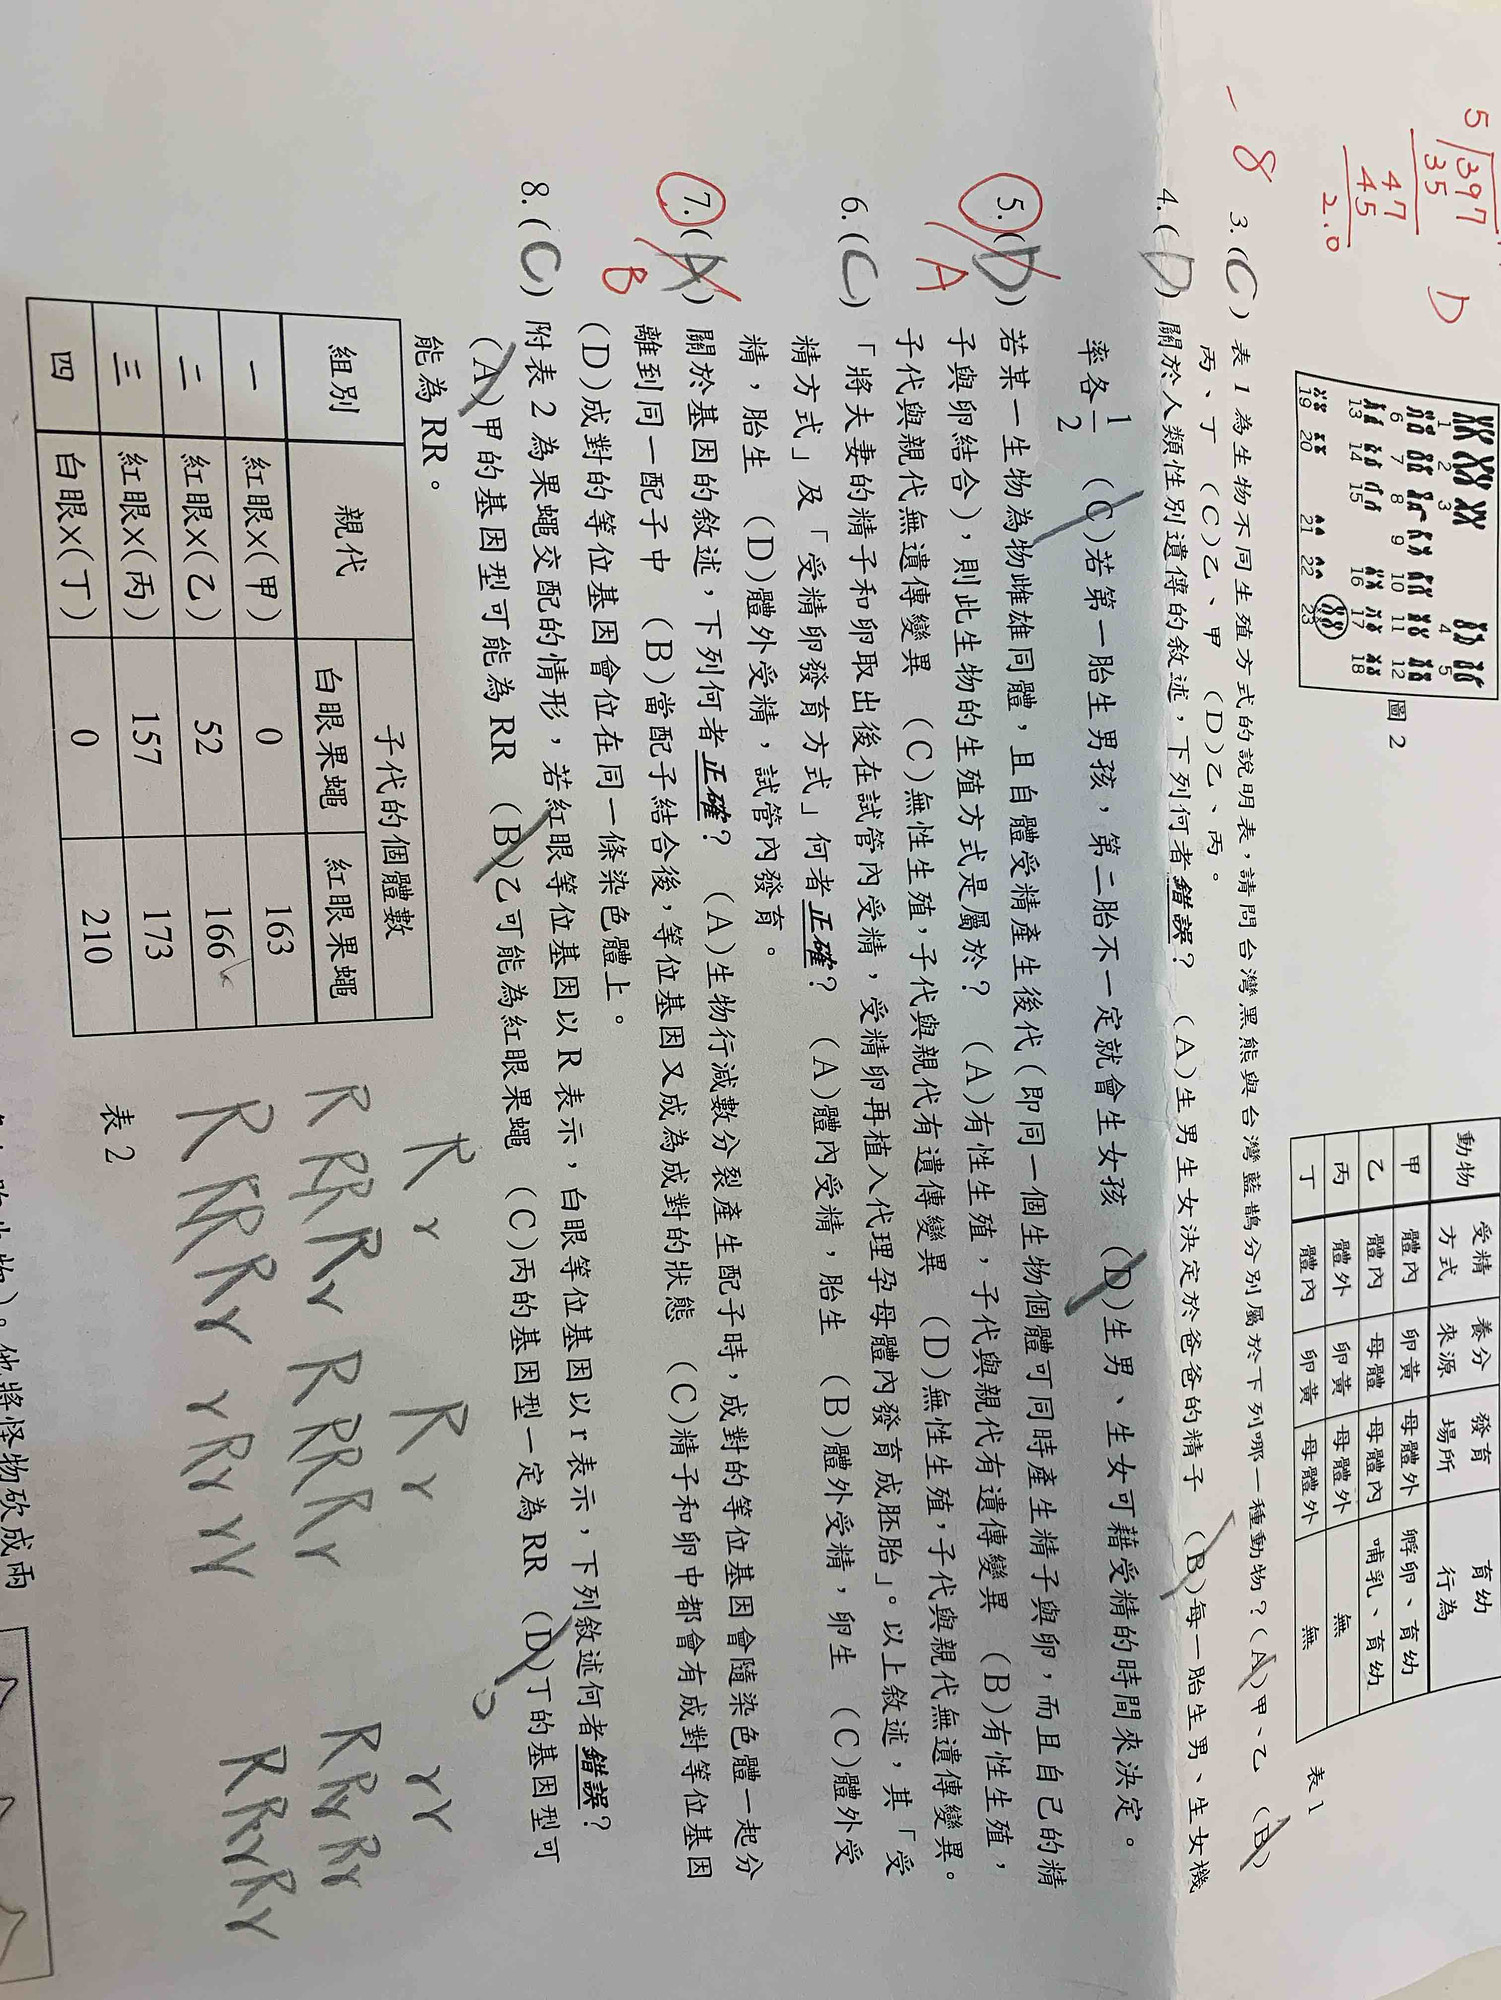 5
397
35
47
45
2.0
D
-8
1 2 3 4 5
6 7 8 9 10 11 12
13 14 15 16 17 18
19 20 21 22 23
圖 2
動物 受精方式 養分來源 發育場所 育幼行為
甲 體內 卵黃 母體外 孵卵、育幼
乙 體內 母體 母體內 哺乳、育幼
丙 體外 卵黃 母體外 無
丁 體內 卵黃 母體外 無
表 1
3.(C) 表 1 為生物不同生殖方式的說明表，請問台灣黑熊與台灣藍鵲分別屬於下列哪一種動物？(A)甲、乙 (B)
丙、丁 (C)乙、甲 (D)乙、丙。
4.(D) 關於人類性別遺傳的敘述，下列何者錯誤？ (A)生男生女決定於爸爸的精子 (B)每一胎生男、生女機
率各1/2 (C)若第一胎生男孩，第二胎不一定就會生女孩 (D)生男、生女可藉受精的時間來決定。
5.(D) 若某一生物為物雌雄同體，且自體受精產生後代(即同一個生物個體可同時產生精子與卵，而且自己的精
A
子與卵結合)，則此生物的生殖方式是屬於？ (A)有性生殖，子代與親代有遺傳變異 (B)有性生殖，
子代與親代無遺傳變異 (C)無性生殖，子代與親代有遺傳變異 (D)無性生殖，子代與親代無遺傳變異。
6.(C) 「將夫妻的精子和卵取出後在試管內受精，受精卵再植入代理孕母體內發育成胚胎」。以上敘述，其「受
精方式」及「受精卵發育方式」何者正確？ (A)體內受精，胎生 (B)體外受精，卵生 (C)體外受
精，胎生 (D)體外受精，試管內發育。
7.(A) 關於基因的敘述，下列何者正確？ (A)生物行減數分裂產生配子時，成對的等位基因會隨染色體一起分
B
離到同一配子中 (B)當配子結合後，等位基因又成為成對的狀態 (C)精子和卵中都會有成對等位基因
(D)成對的等位基因會位在同一條染色體上。
8.(C) 附表 2 為果蠅交配的情形，若紅眼等位基因以 R 表示，白眼等位基因以 r 表示，下列敘述何者錯誤？
(A)甲的基因型可能為 RR (B)乙可能為紅眼果蠅 (C)丙的基因型一定為 RR (D)丁的基因型可
能為 RR。
組別 親代 子代的個體數
白眼果蠅 紅眼果蠅
一 紅眼×(甲) 0 163
二 紅眼×(乙) 52 166
三 紅眼×(丙) 157 173
四 白眼×(丁) 0 210
表 2
R r R r r r
R RR Rr R RR Rr R Rr Rr
R RR Rr r Rr rr R Rr Rr
他將怪物砍成兩